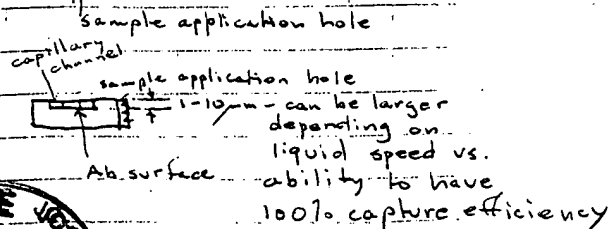 sample application hole
capillary
channel
sample application hole
1-10 µm - can be larger
depending on
liquid speed vs.
Ab surface
ability to have
100% capture efficiency